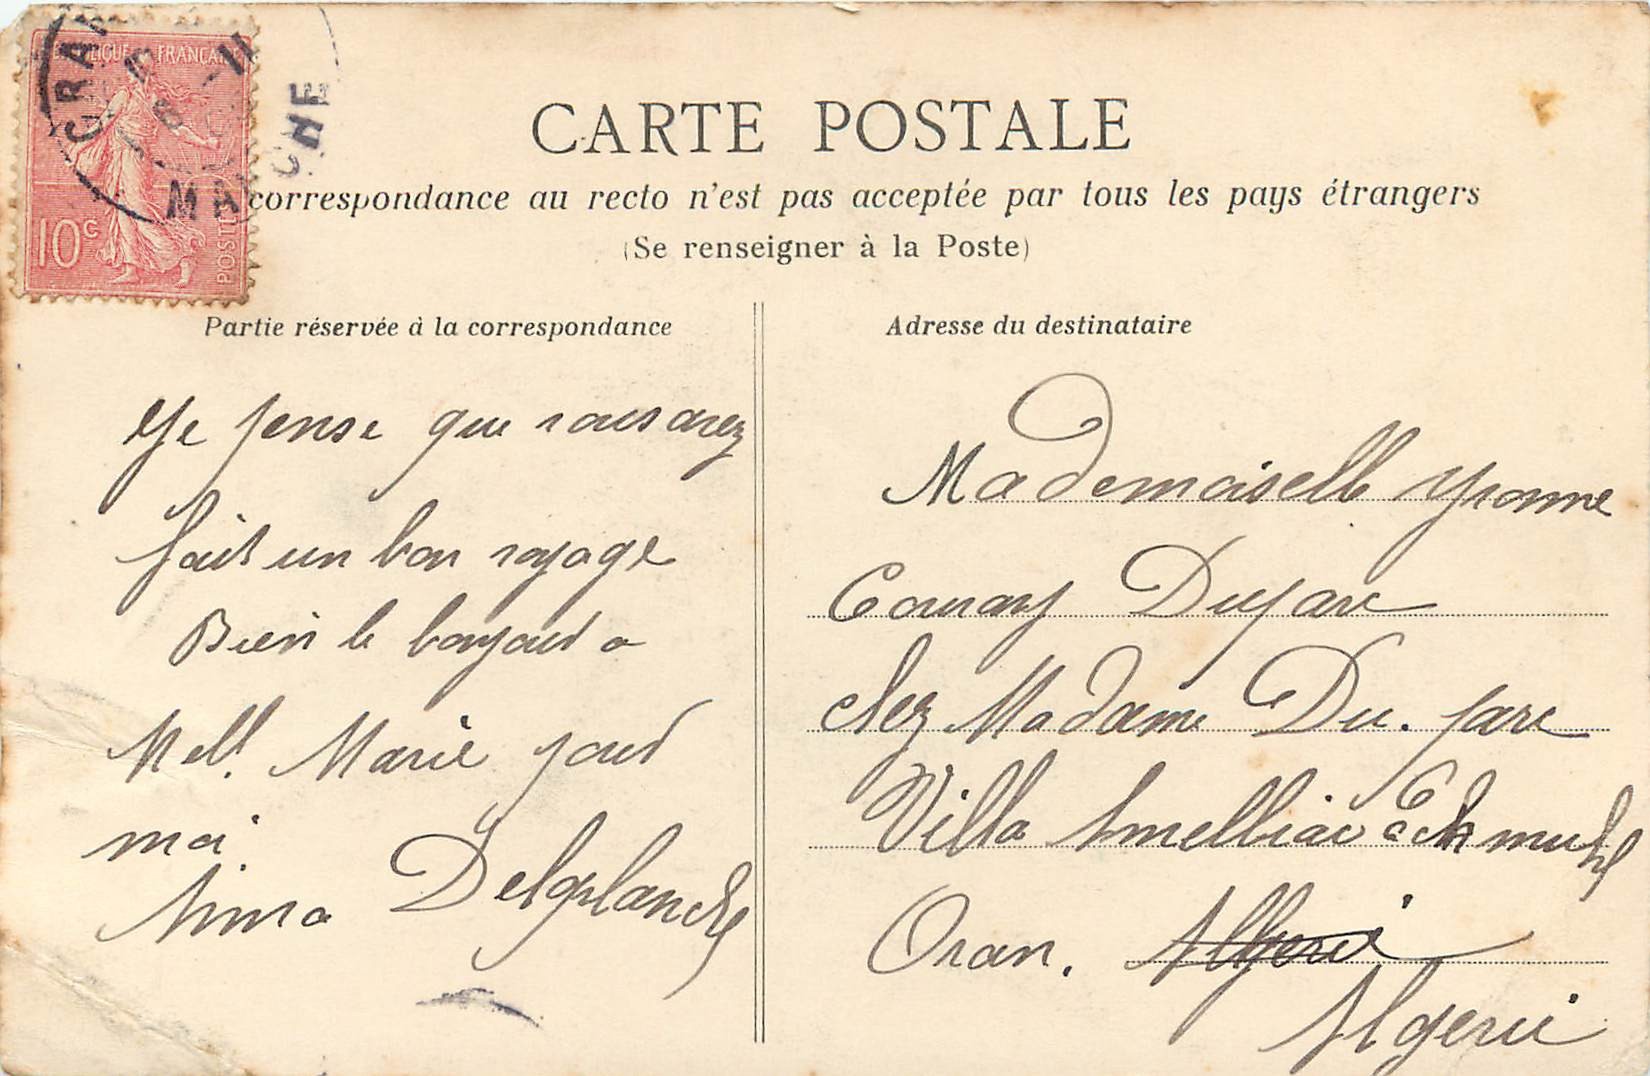 RÉPUBLIQUE FRANÇAISE
10c
POSTES
GRAN
MANCHE
CARTE POSTALE
correspondance au recto n'est pas acceptée par tous les pays étrangers
(Se renseigner à la Poste)
Partie réservée à la correspondance
Je pense que vous avez
fait un bon voyage
Bien le bonjour a
Mell. Marie pour
moi.
Anna Delaplanche
Adresse du destinataire
Mademoiselle Yvonne
Dujarc
chez Madame Du. jarc
Villa Eckmuhl
Oran. Algerie
Algerie